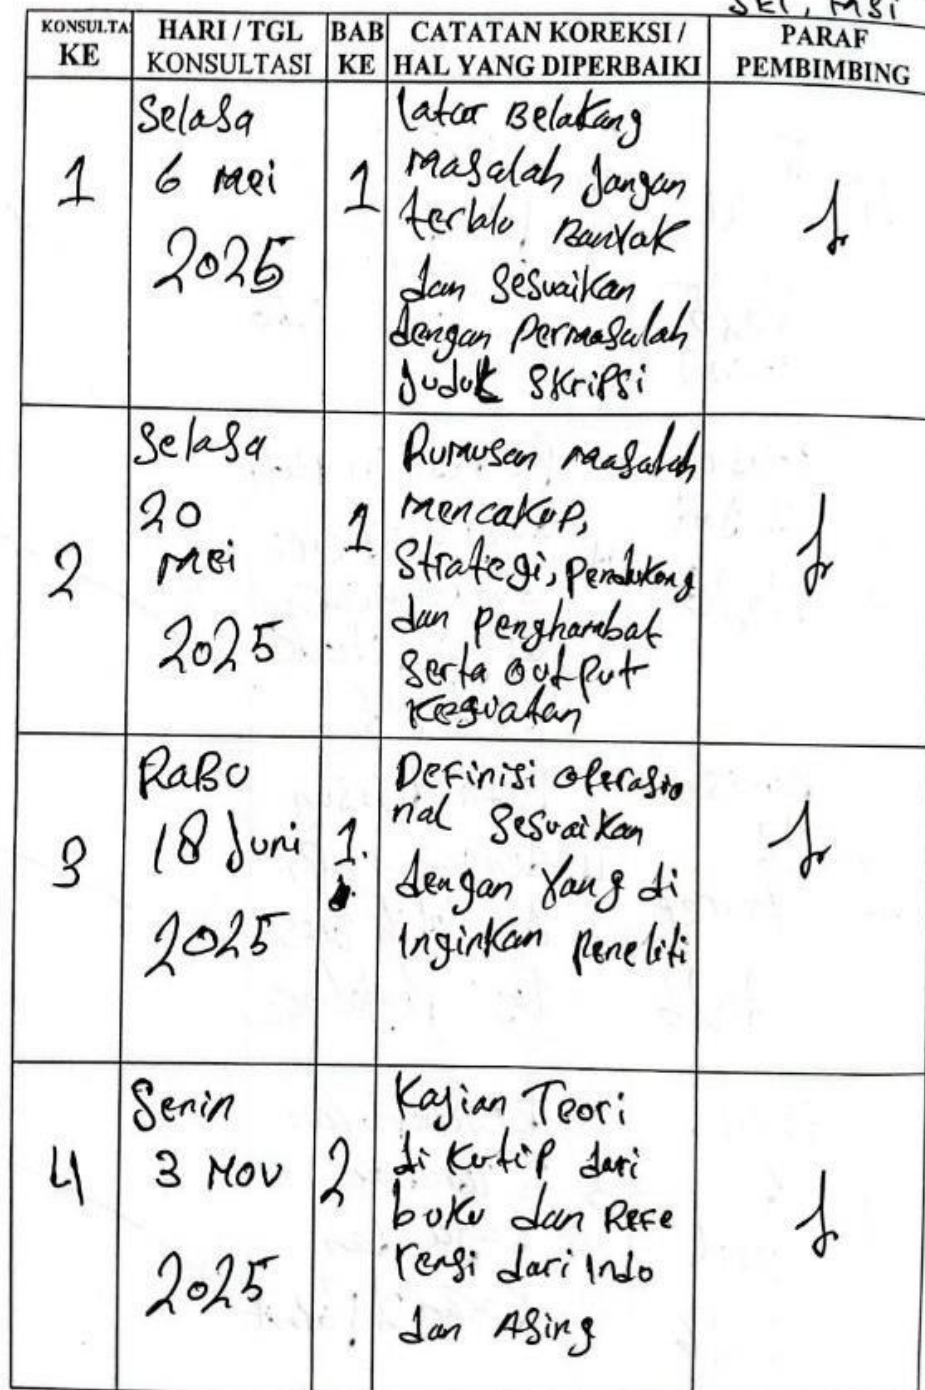 SEI, MSi
KONSULTA HARI / TGL BAB CATATAN KOREKSI / PARAF
KE KONSULTASI KE HAL YANG DIPERBAIKI PEMBIMBING
1
Selasa
6 Mei
2025
1
Latar Belakang
Masalah Jangan
terlalu Banyak
dan Sesuaikan
dengan Permasalah
Judul Skripsi
2
Selasa
20
Mei
2025
1
Rumusan Masalah
mencakup,
Strategi, Pendukung
dan Penghambat
Serta Output
Keguatan
3
Rabu
18 Juni
2025
1.
Definisi operasio
nal Sesuaikan
dengan Yang di
Inginkan Peneliti
4
Senin
3 Nov
2025
2
Kajian Teori
di Kutip dari
buku dan Refe
rensi dari Indo
dan Asing